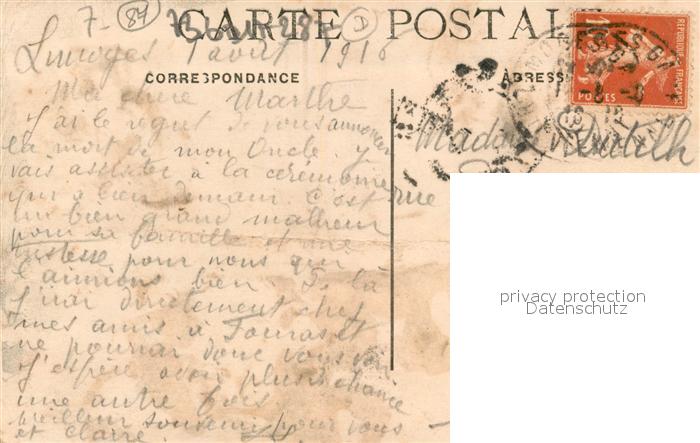 7- 87 D
CARTE POSTALE
Limoges 1 aout 1916
CORRESPONDANCE
ADRESSE
REPUBLIQUE FRANÇAISE
POSTES
Ma chère Marthe
J'ai le regret de vous annoncer
la mort de mon Oncle. J'y
vais assister à la cérémonie
qui a lieu demain. C'est
un bien grand malheur
pour sa famille et une
tristesse pour nous qui
l'aimions bien. De là
j'irai directement chez
mes amis à Fouras et
ne pourrai donc vous voir
J'espère avoir plus de chance
une autre fois
meilleur souvenir pour vous
et Claire
Madame
rue
privacy protection
Datenschutz